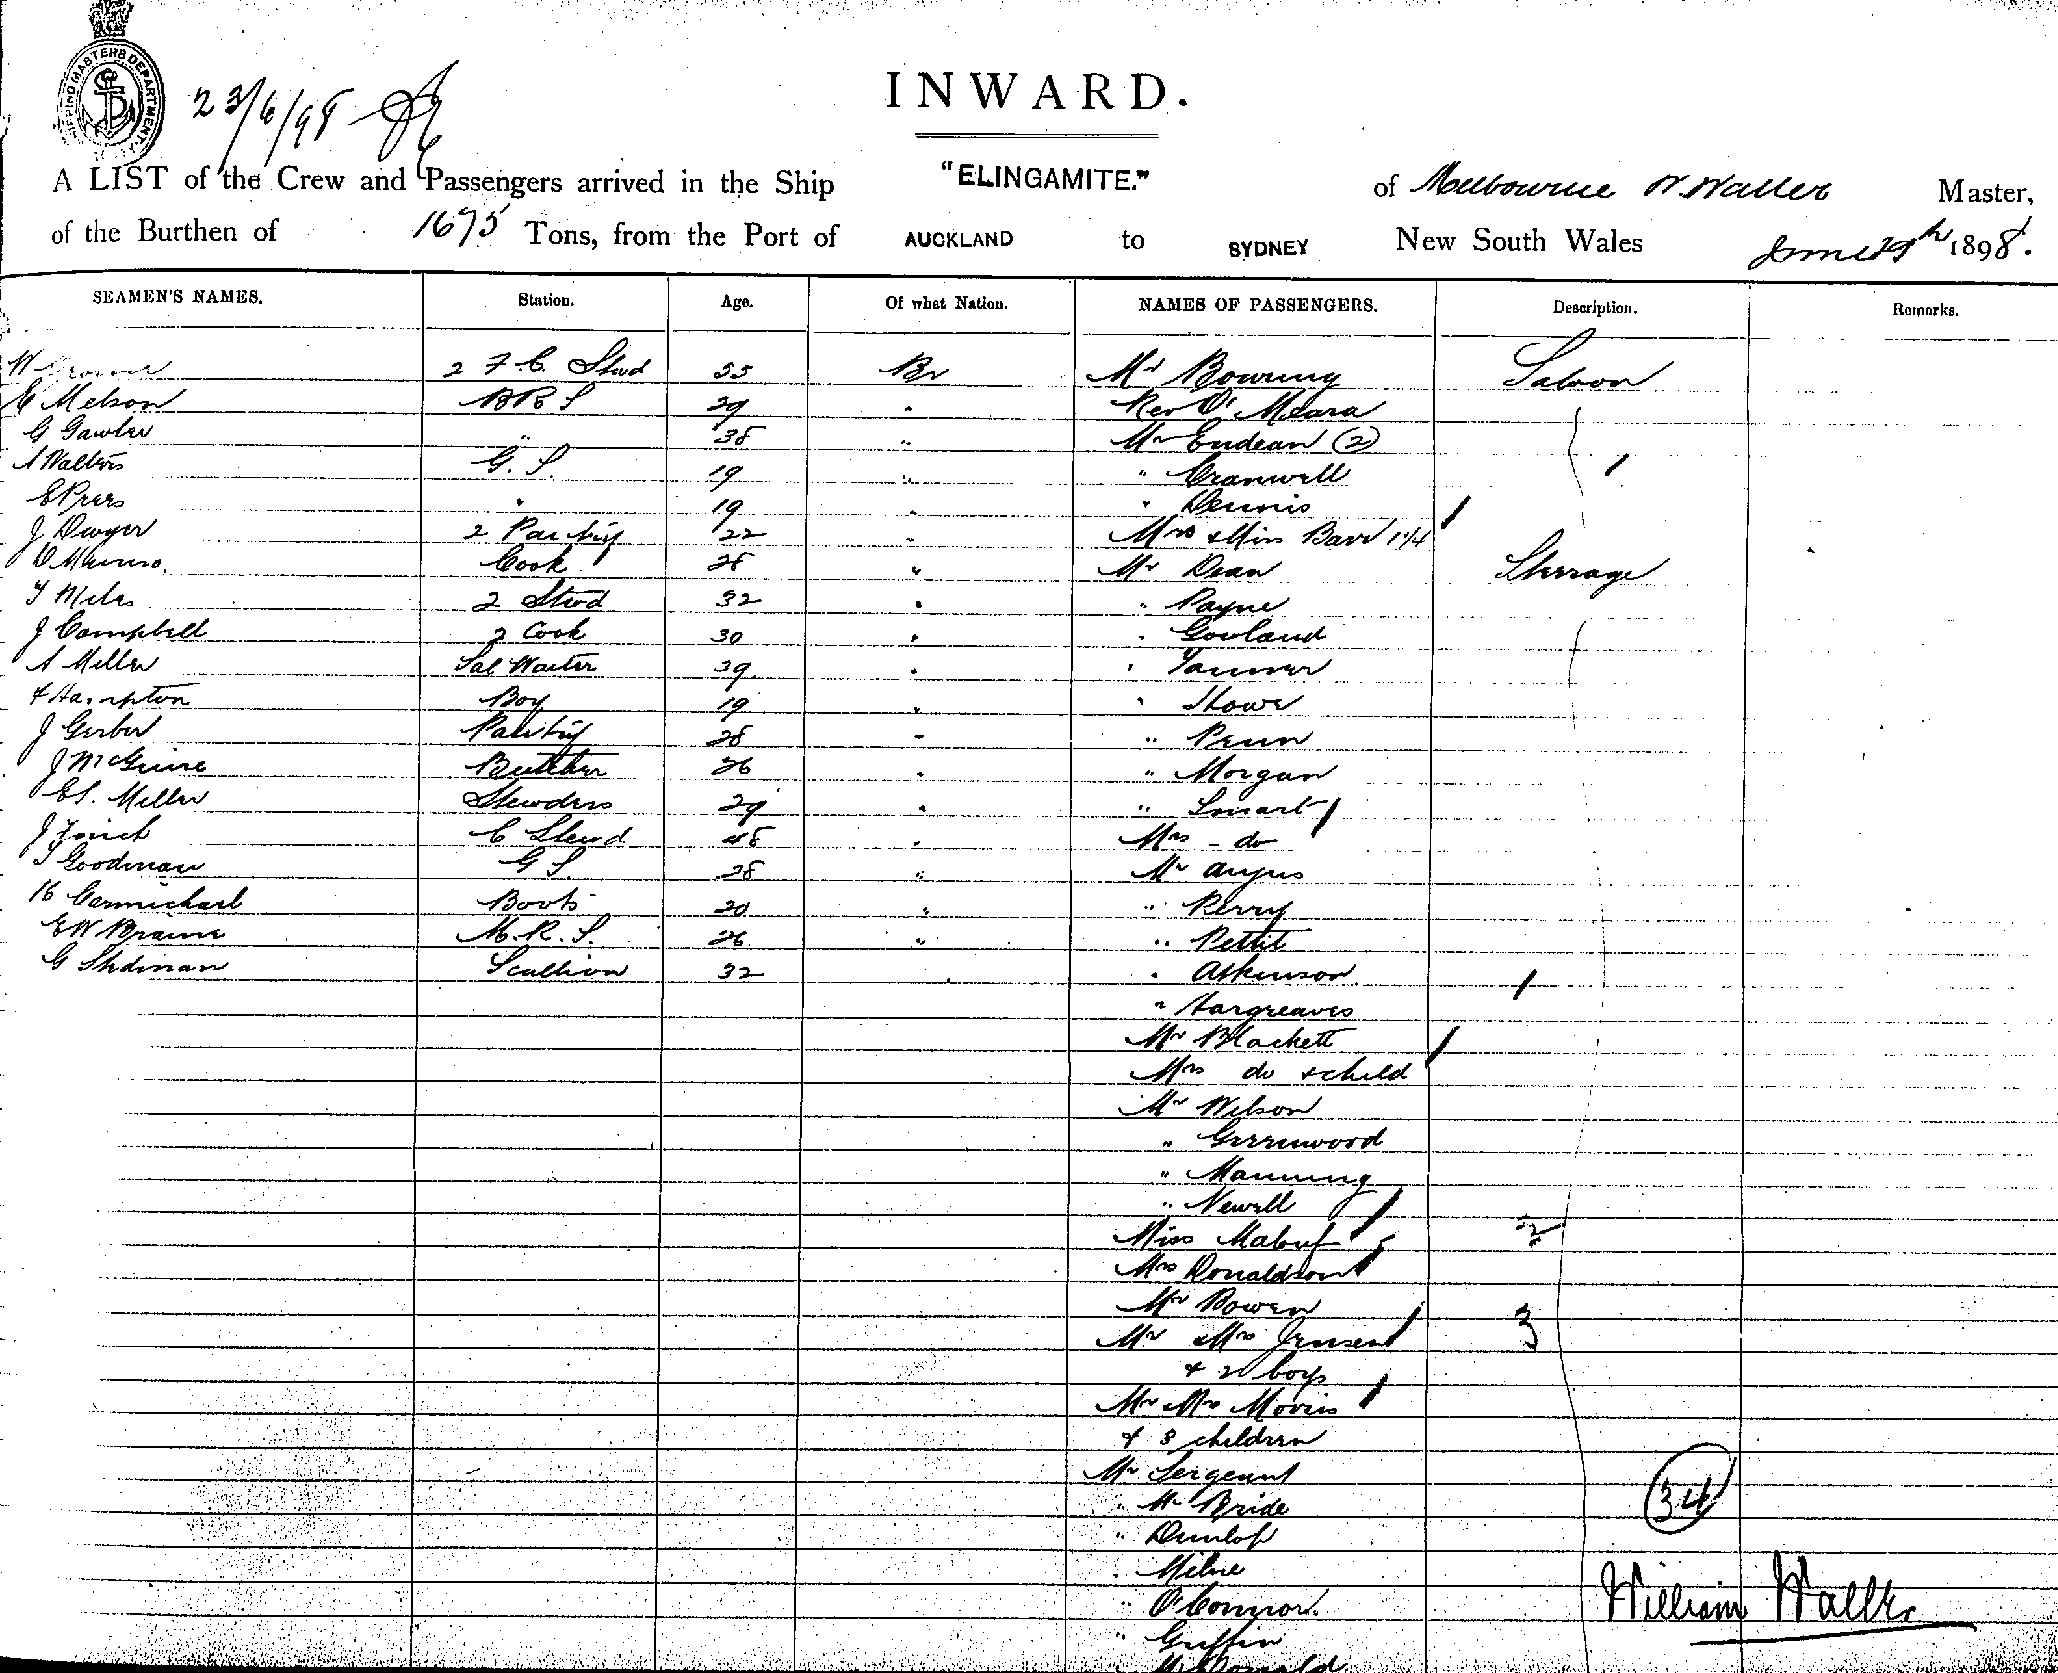 SHIPPING MASTERS DEPARTMENT
23/6/98
INWARD.
A LIST of the Crew and Passengers arrived in the Ship "ELINGAMITE." of Melbourne W. Waller Master,
of the Burthen of 1675 Tons, from the Port of AUCKLAND to SYDNEY New South Wales June 1898.
SEAMEN'S NAMES. Station. Age. Of what Nation. NAMES OF PASSENGERS. Description. Remarks.
W 2 F.C. Stwd Br Mr Bowring Saloon
Melson BRS 29 " Rev O'Meara
G Gawler " 38 " Mr Endean (2)
A Walters G. S. 19 " " Cranwell
E Prees " 19 " " Dennis
J Dwyer 2 Pantry 22 " Mrs & Miss Barr
D Munro. Cook 28 " Mr Dean Steerage
T Miles 2 Stwd 32 " " Payne
J Campbell 2 Cook 30 " " Gowland
A Miller Sal Waiter 39 " " Tanner
F Hampton Boy 19 " " Howe
J Gerber Pantry 28 " " Penn
J McGuire Butcher 26 " " Morgan
Miller Stewdess 29 " " Smart
J C Stewd 48 " Mrs - do
T Goodman G S. 28 " Mr Angus
H Carmichael Boots 20 " " Perry
E W Braine M. R. S. 26 " " Pettit
G Scullion 32 " " Atkinson
" Hargreaves
Mr Blackett
Mrs do & child
Mr Wilson
" Greenwood
" Manning
" Newell
Miss Malouf 2
Mrs Donaldson
Mr Bowen 3
Mr & Mrs Jensen
& 2 boys
Mr Mrs Morris
& 8 children
Mr Sergeant
" McBride 34
" Dunlop
" Milne
" O'Connor. William Waller
" Griffin
" McDonald